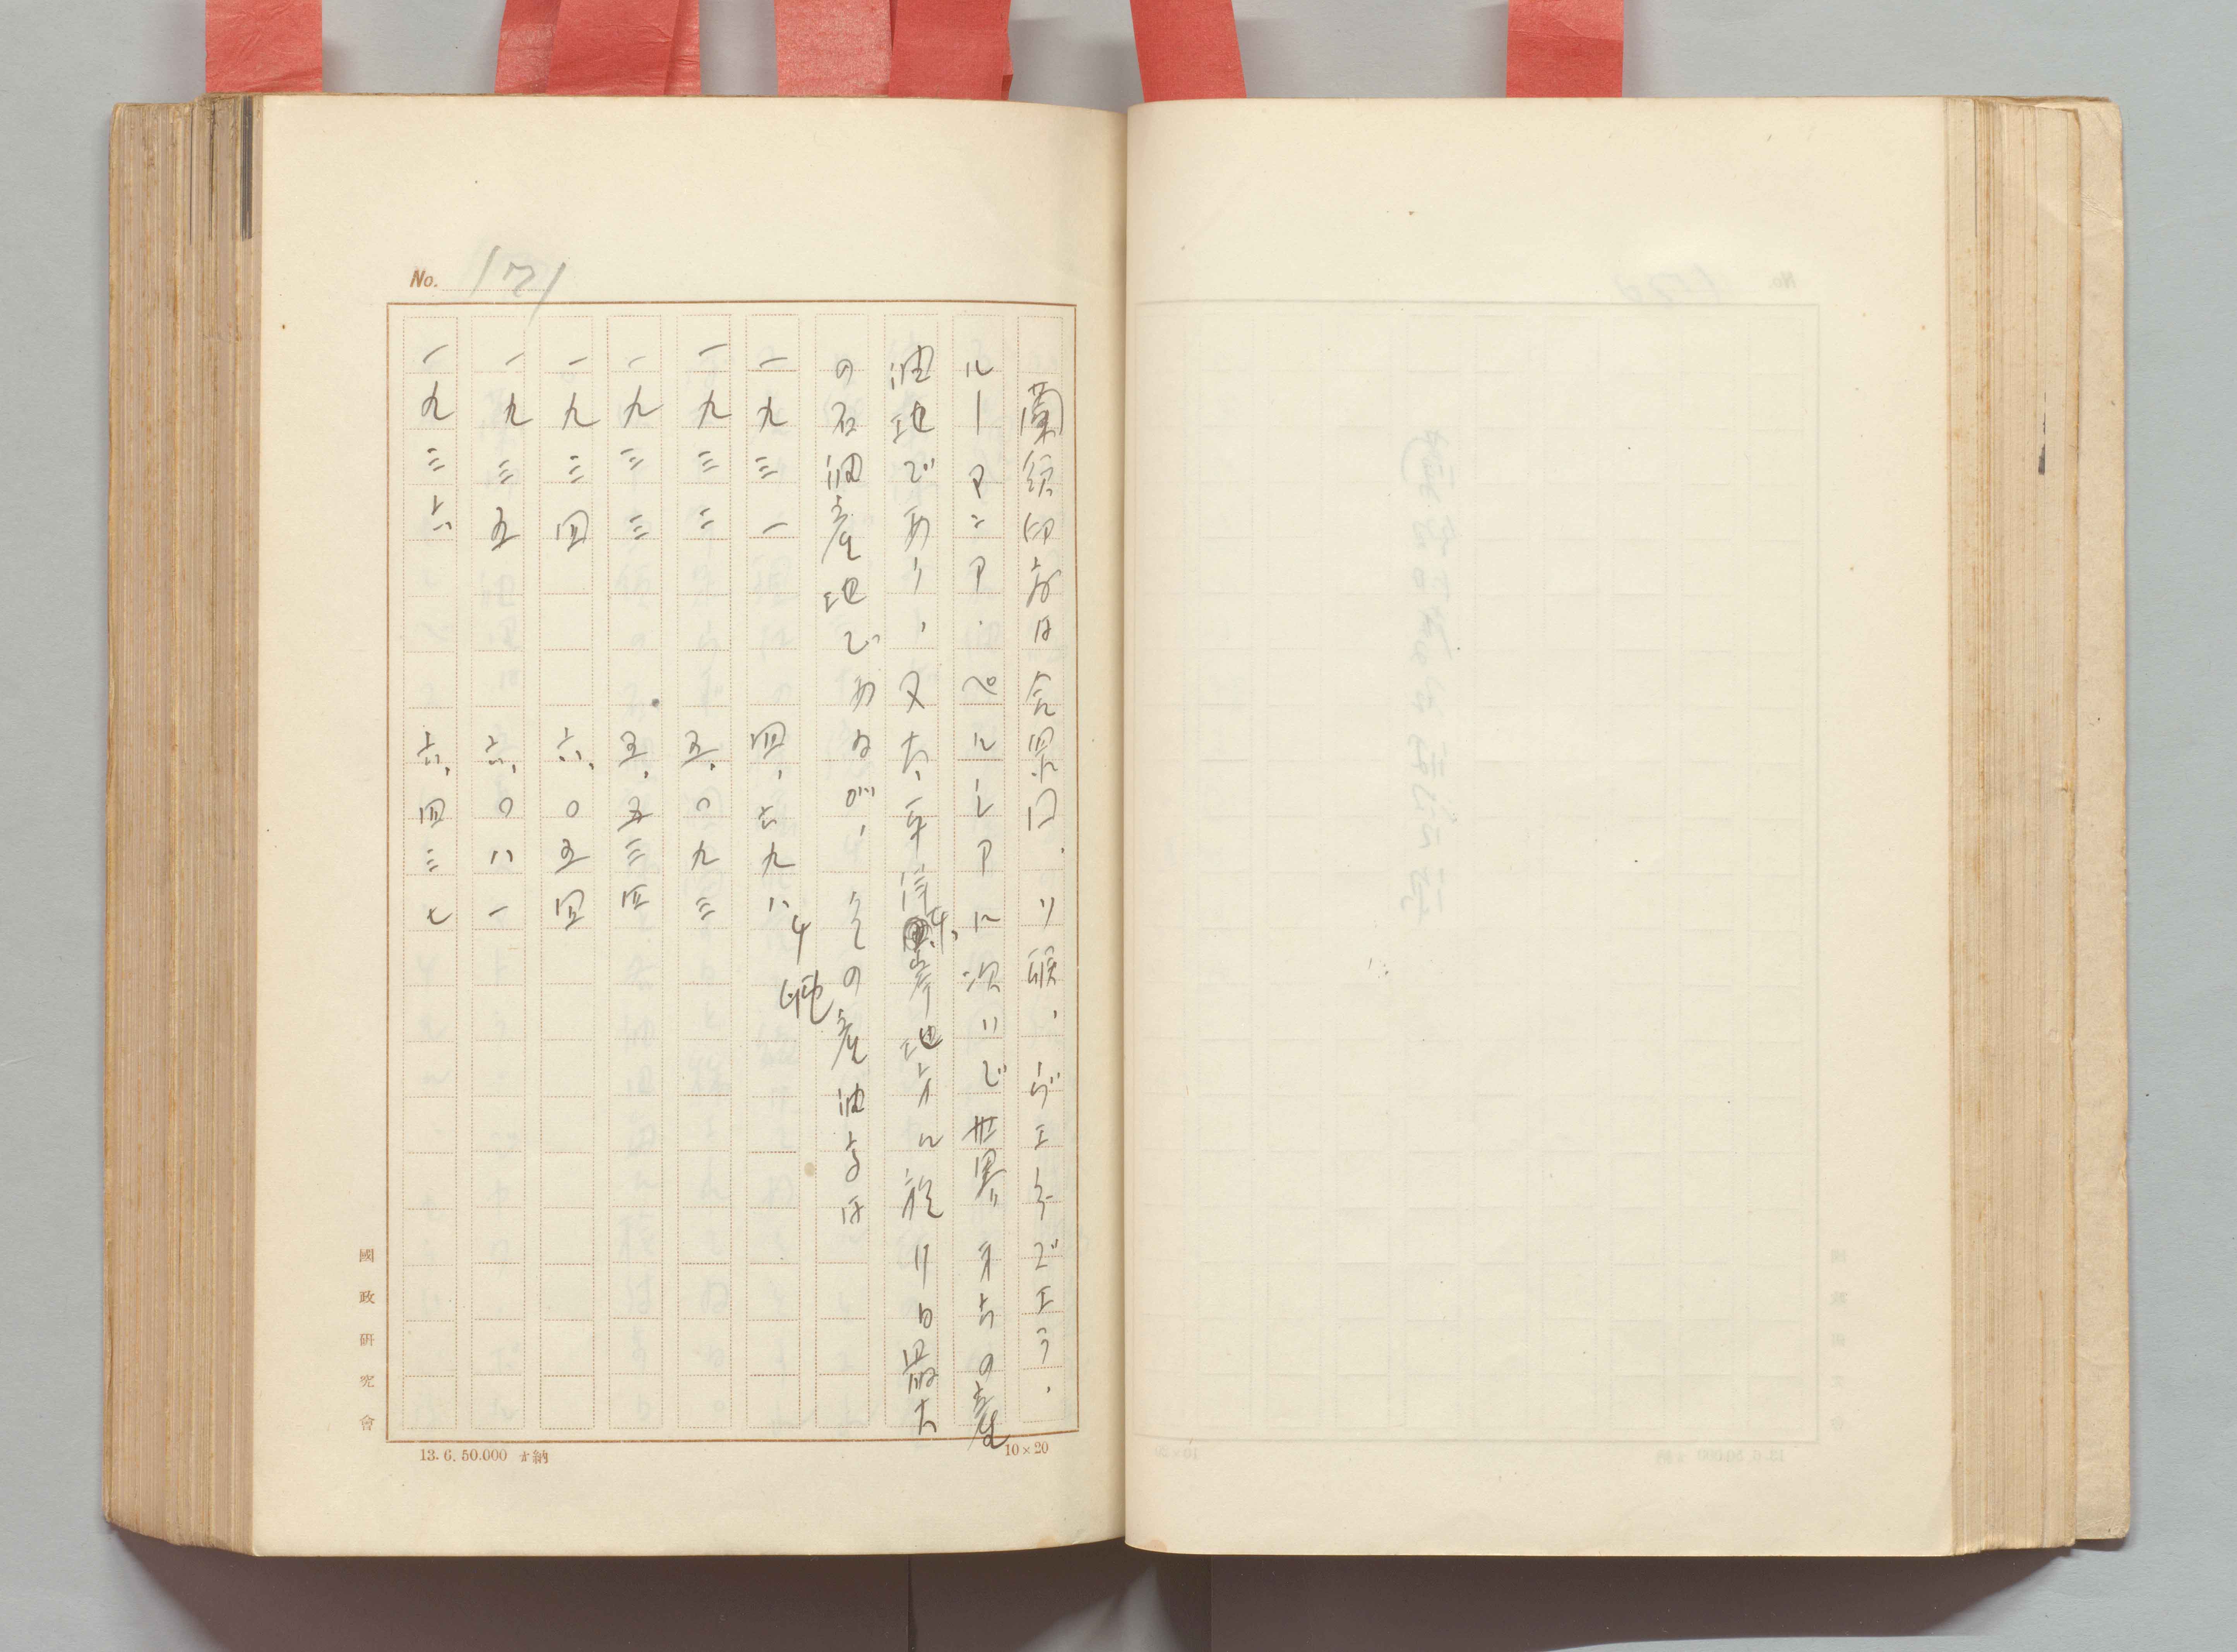 No. 171
蘭領印度は合衆国、ソ聯、ヴェネズエラ、
ルーマニア・ペルシアに次いで世界第六の産
油地であり、又太平洋沿岸地方に於ける最大
の石油産地であるが、その産油高は
一九三一 四、六九八千瓲
一九三二 五、〇九三
一九三三 五、五三四
一九三四 六、〇五四
一九三五 六、〇八一
一九三六 六、四三七
國政研究會
13. 6. 50.000 納
10×20